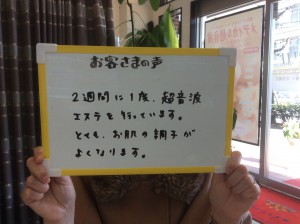 お客さまの声
2週間に1度、超音波
エステを行っています。
とても、お肌の調子が
よくなります。